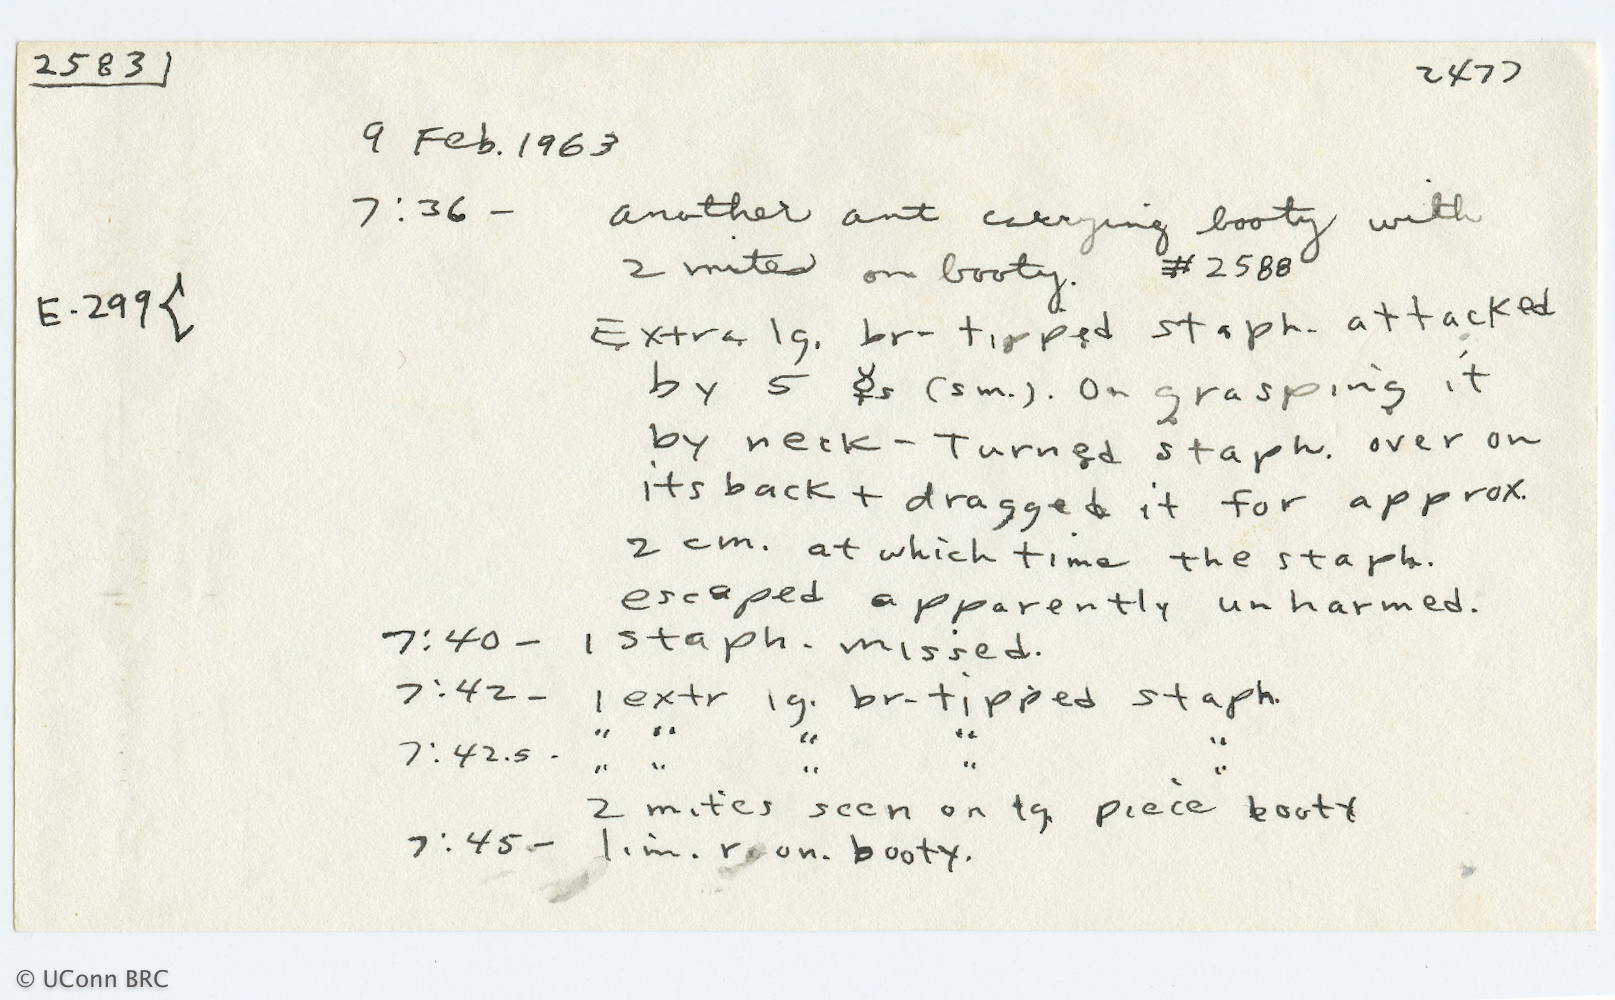 2583]
2477
9 Feb. 1963
7:36 - another ant carrying booty with
2 mites on booty. #2588
E-299{
Extra lg. br-tipped staph. attacked
by 5 ☿s (sm.). On grasping it
by neck - Turned staph. over on
its back + dragged it for approx.
2 cm. at which time the staph.
escaped apparently unharmed.
7:40 - 1 staph. missed.
7:42 - 1 extr lg. br-tipped staph.
" " " " "
7:42.5 - " " " " "
2 mites seen on lg. piece booty
7:45 - 1 im. r on. booty.
© UConn BRC